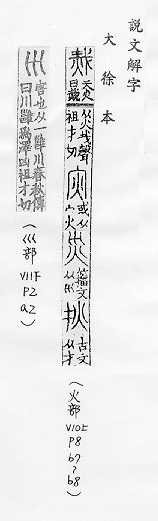 説文解字
大徐本
烖 天火曰烖从火𢦏聲祖才切 灾 或从宀火 災 籀文从巛 𤆎 古文从才
(火部 V10上 P8 b7~b8)
𡿧 害也从一雝川春秋傳曰川雝爲澤凶祖才切
(巛部 V11下 P2 a2)